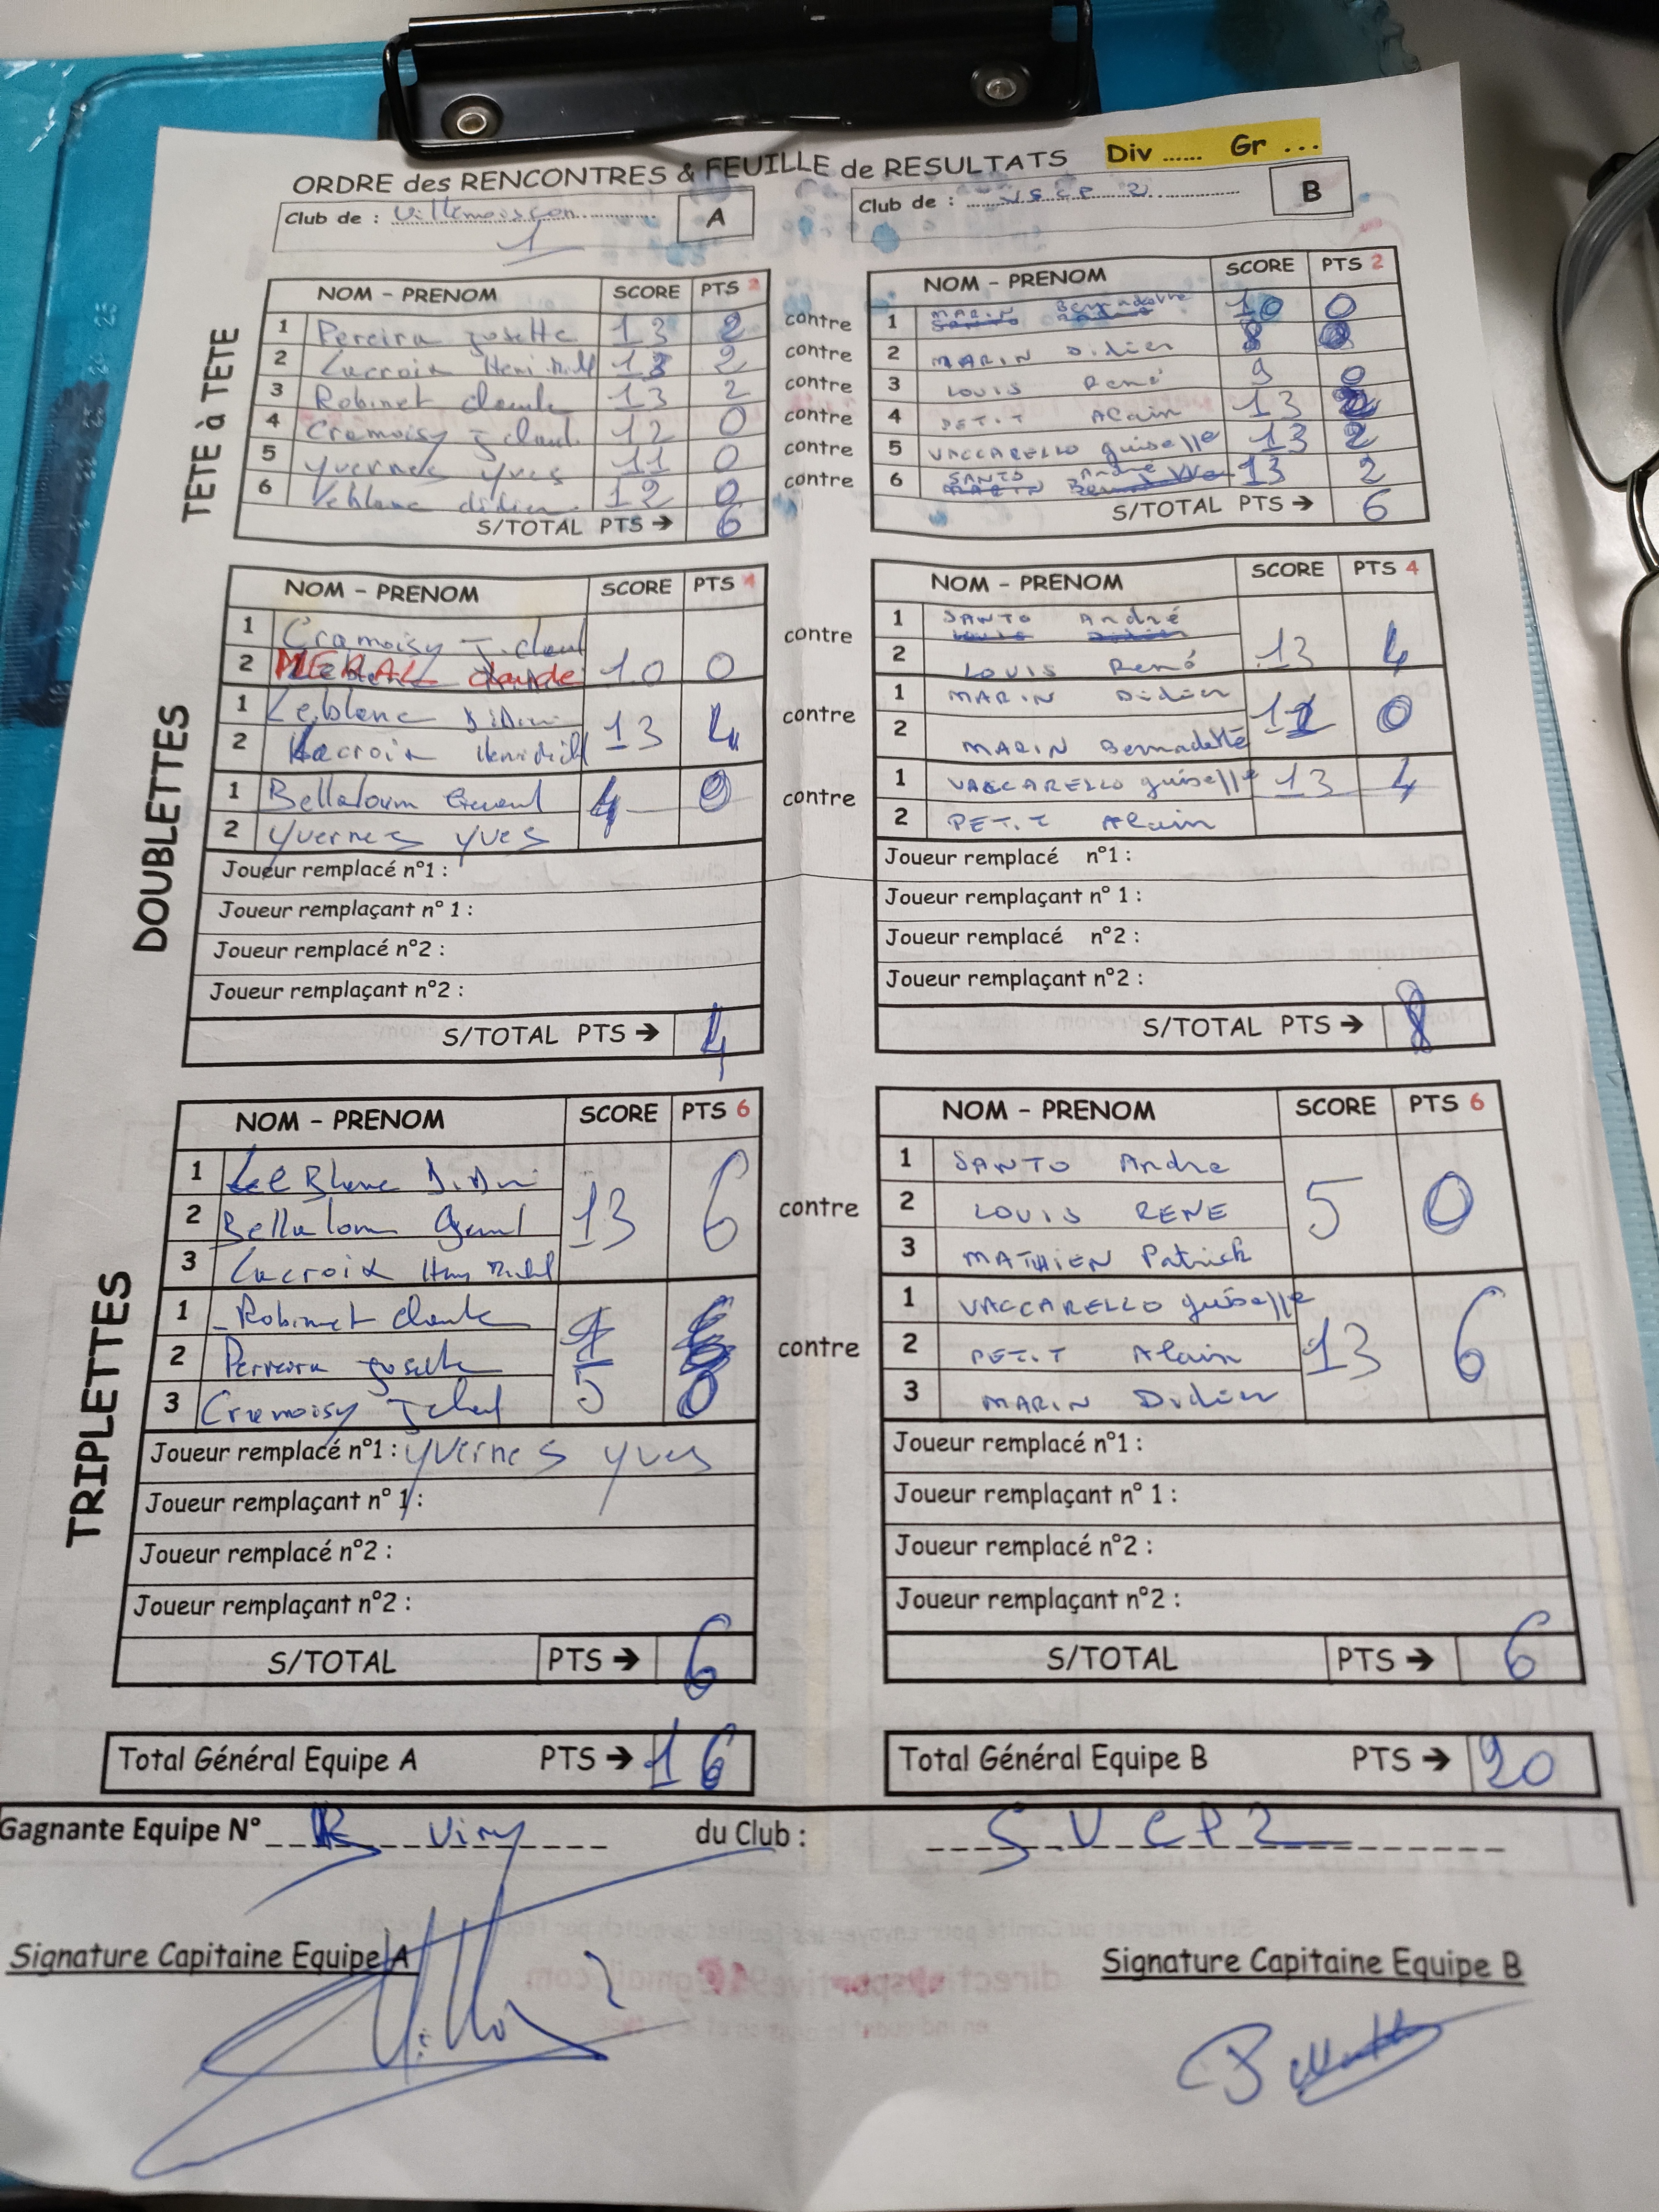 Div ...... Gr ...
ORDRE des RENCONTRES & FEUILLE de RESULTATS
Club de : Villemoisson 1 A
Club de : B
TETE à TETE
NOM - PRENOM SCORE PTS 2 NOM - PRENOM SCORE PTS 2
1 Pereira Josette 13 2 contre 1 MARIN Bernadette 10 0
2 Lacroix Henri 13 2 contre 2 MARIN Didier 8 0
3 Robinet claude 13 2 contre 3 LOUIS René 9 0
4 Cramoisy J claud 12 0 contre 4 PETIT Alain 13 2
5 Yvernes yves 11 0 contre 5 VACCARELLO guiselle 13 2
6 Leblanc didier 12 0 contre 6 SANTO André 13 2
S/TOTAL PTS → 6 S/TOTAL PTS → 6
DOUBLETTES
NOM - PRENOM SCORE PTS 4 NOM - PRENOM SCORE PTS 4
1 Cramoisy J. claud contre 1 SANTO André
2 MERAL claude 10 0 2 LOUIS René 13 4
1 Leblanc Didier 13 4 contre 1 MARIN Didier 0
2 Lacroix 2 MARIN Bernadette
1 4 0 contre 1 VACCARELLO guiselle 13 4
2 yvernes yves 2 PETIT Alain
Joueur remplacé n°1 : Joueur remplacé n°1 :
Joueur remplaçant n° 1 : Joueur remplaçant n° 1 :
Joueur remplacé n°2 : Joueur remplacé n°2 :
Joueur remplaçant n°2 : Joueur remplaçant n°2 :
S/TOTAL PTS → 4 S/TOTAL PTS → 8
TRIPLETTES
NOM - PRENOM SCORE PTS 6 NOM - PRENOM SCORE PTS 6
1 LeBlanc Didier 1 SANTO Andre
2 13 6 contre 2 LOUIS RENE 5 0
3 Lacroix 3 MATHIEN Patrick
1 Robinet claude 1 VACCARELLO guiselle
2 Perreira josette contre 2 PETIT Alain 13 6
3 Cramoisy 5 0 3 MARIN Didier
Joueur remplacé n°1 : yvernes yves Joueur remplacé n°1 :
Joueur remplaçant n° 1 : Joueur remplaçant n° 1 :
Joueur remplacé n°2 : Joueur remplacé n°2 :
Joueur remplaçant n°2 : Joueur remplaçant n°2 :
S/TOTAL PTS → 6 S/TOTAL PTS → 6
Total Général Equipe A PTS → 16 Total Général Equipe B PTS → 20
Gagnante Equipe N° Viry du Club : SVCP2
Signature Capitaine Equipe A Signature Capitaine Equipe B